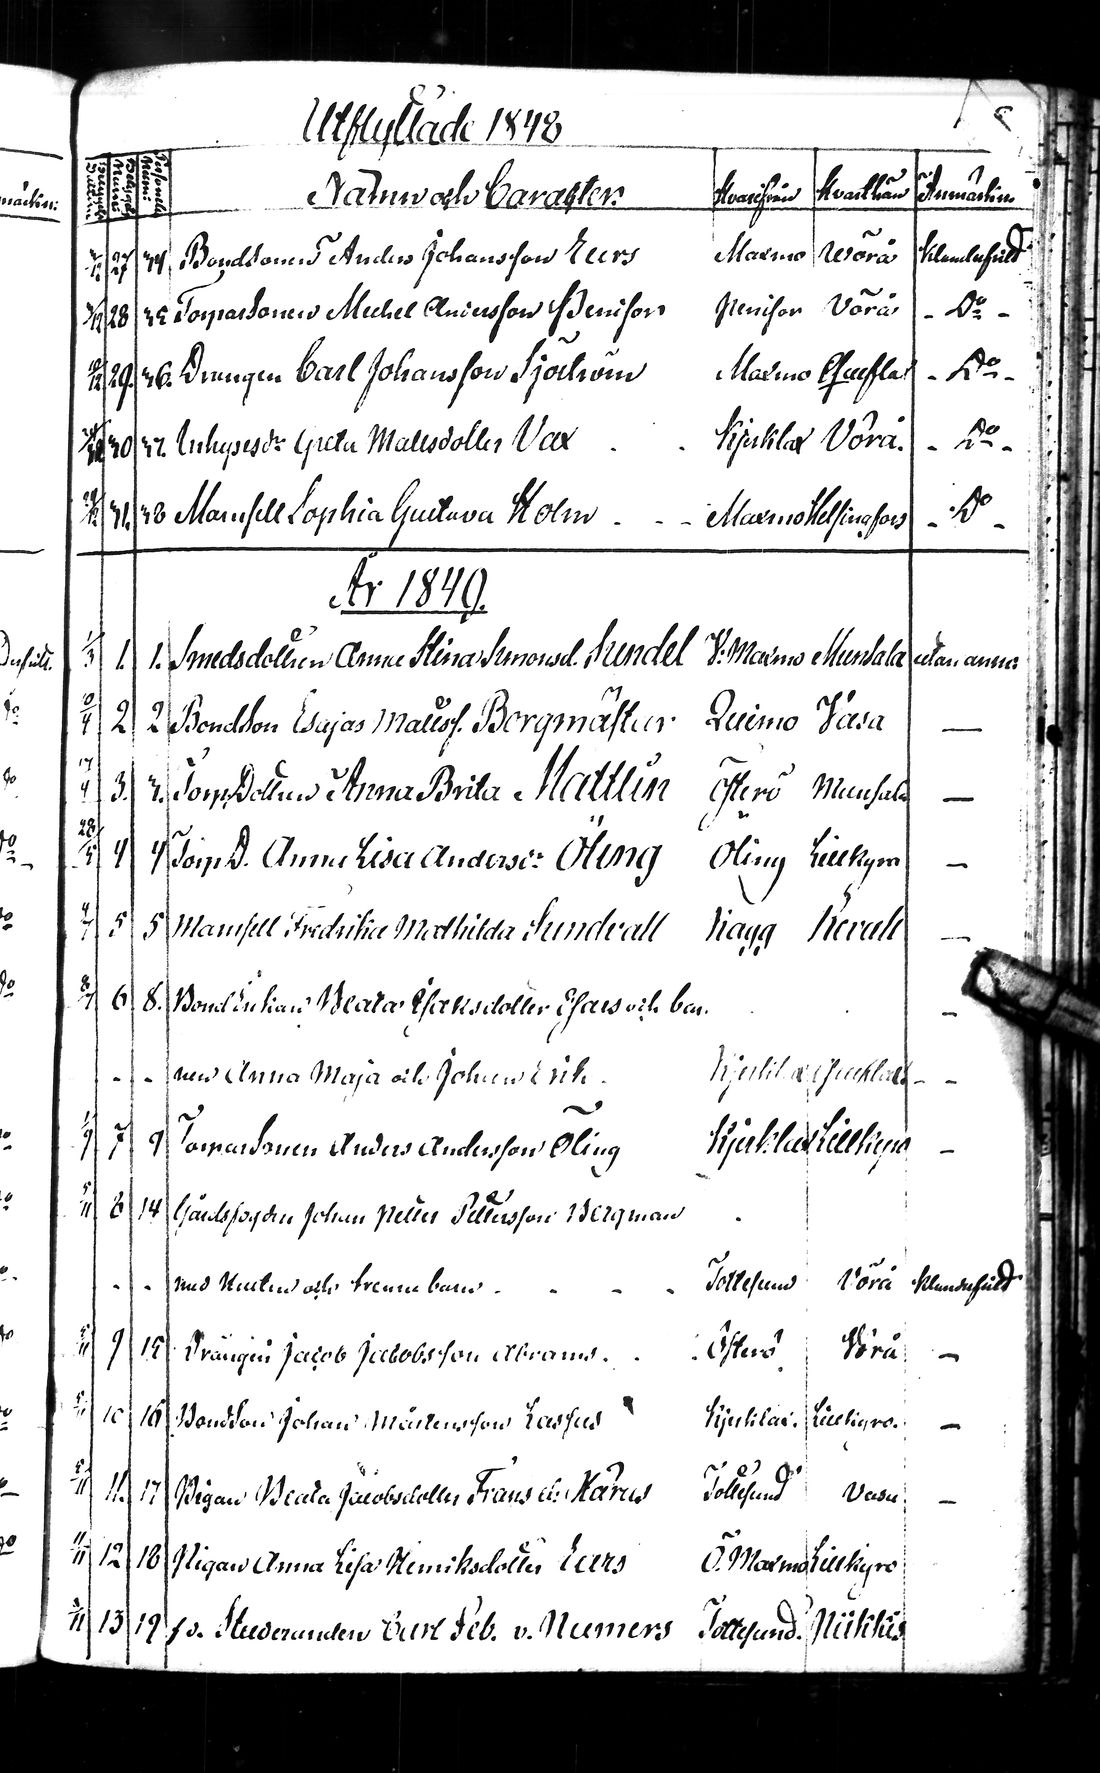 Utflyttade 1848
Namn och Caracter. Hvarifrån Hvarthän Anmärkn.
27 34 Bondsonen Anders Johansson Eers Maxmo Wörå Klanderfritt
28 35 Torparsonen Michel Andersson Kenison Kenison Vörå - Do -
29. 36. Drengen Carl Johansson Sjöström Maxmo - Do -
30 37. Inhyses dr Greta Mattsdotter Vax Kjerklax Vörå. - Do -
31. 38 Mamsell Sophia Gustava Holm - - - Maxmo Helsingfors - Do -
År 1849.
1/3 1. 1. Smedsdottren Anna Stina Simonsd. Sundel V. Maxmo Munsala utan anm.
2 2 Bondson Esajas Mattss. Borgmästar Qvimo Vasa —
17/4 3. 3. Torp.Dottren Anna Brita Mattlin Österö Munsala —
28/5 4 4 Torp D. Anna Lisa Andersdr Öling Öling Lillkyro —
4/7 5 5 Mamsell Fredrika Mathilda Sundvall Kagg —
8/7 6 8. Bond Enkan Beata Isaksdotter Esars och bar- —
- - nen Anna Maja och Johan Erik. Kjerklax - -
1/9 7 9 Torparsonen Anders Andersson Öling Kjerklax Lillkyro -
5/11 8 14 Gårdsfogden Johan Petter Pettersson Bergman
- - med Hustru och trenne barn - - - - Tottesund Vörå Klanderfritt
5/11 9 15 Drängen Jacob Jacobsson Abrams. Österö Vörå —
5/11 10 16 Bondson Johan Mårtensson Lassus Kjerklax. Lillkyro. —
5/11 11. 17 Pigan Beata Jacobsdotter Frans el. Kärus Tottesund Vasa —
11/11 12 18 Pigan Anna Lisa Henriksdotter Eers Ö. Maxmo Lillkyro
13 19 f.d. Studeranden Carl Feb. v. Numers Tottesund.